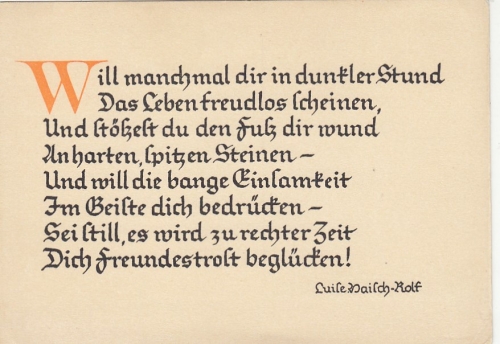 Will manchmal dir in dunkler Stund
Das Leben freudlos scheinen,
Und stößest du den Fuß dir wund
An harten, spitzen Steinen –
Und will die bange Einsamkeit
Im Geiste dich bedrücken –
Sei still, es wird zu rechter Zeit
Dich Freundestrost beglücken!
Luise Haisch-Rolf